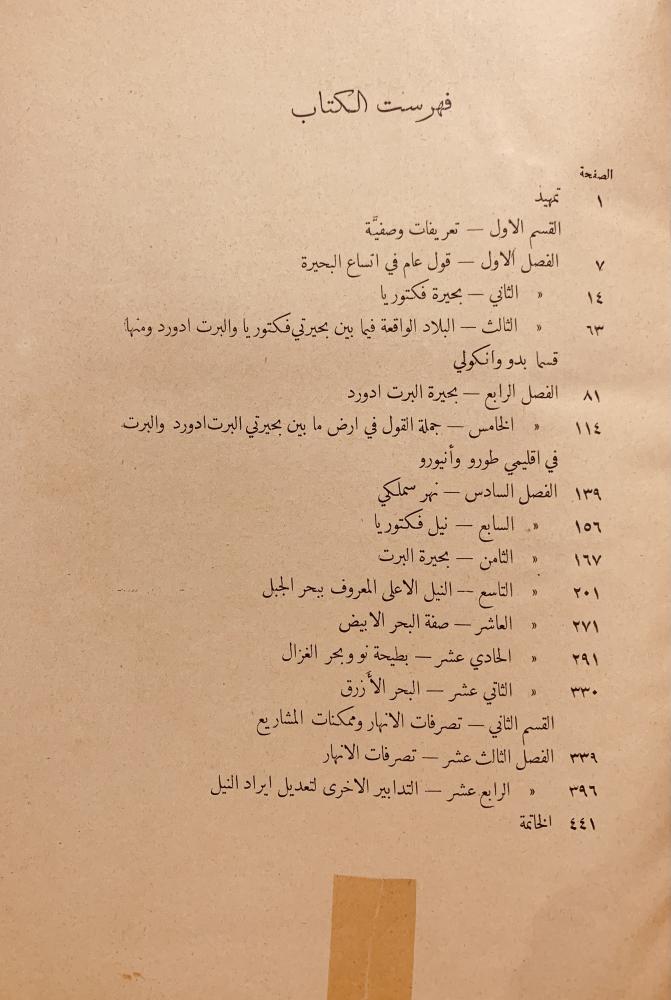 فهرست الكتاب
الصفحة
١ تمهيد
القسم الاول — تعريفات وصفيَّة
٧ الفصل الاول — قول عام في اتساع البحيرة
١٤ « الثاني — بحيرة فكتوريا
٦٣ « الثالث — البلاد الواقعة فيما بين بحيرتي فكتوريا والبرت ادورد ومنها
قسما بدو وانكولي
٨١ الفصل الرابع — بحيرة البرت ادورد
١١٤ « الخامس — جملة القول في ارض ما بين بحيرتي البرت ادورد والبرت
في اقليمي طورو وأنيورو
١٣٩ الفصل السادس — نهر سملكي
١٥٦ « السابع — نيل فكتوريا
١٦٧ « الثامن — بحيرة البرت
٢٠١ « التاسع — النيل الاعلى المعروف ببحر الجبل
٢٧١ « العاشر — صفة البحر الابيض
٢٩١ « الحادي عشر — بطيحة نو وبحر الغزال
٣٣٠ « الثاتي عشر — البحر الأزرق
القسم الثاني — تصرفات الانهار وممكنات المشاريع
٣٣٩ الفصل الثالث عشر — تصرفات الانهار
٣٩٦ « الرابع عشر — التدابير الاخرى لتعديل ايراد النيل
٤٤١ الخاتمة